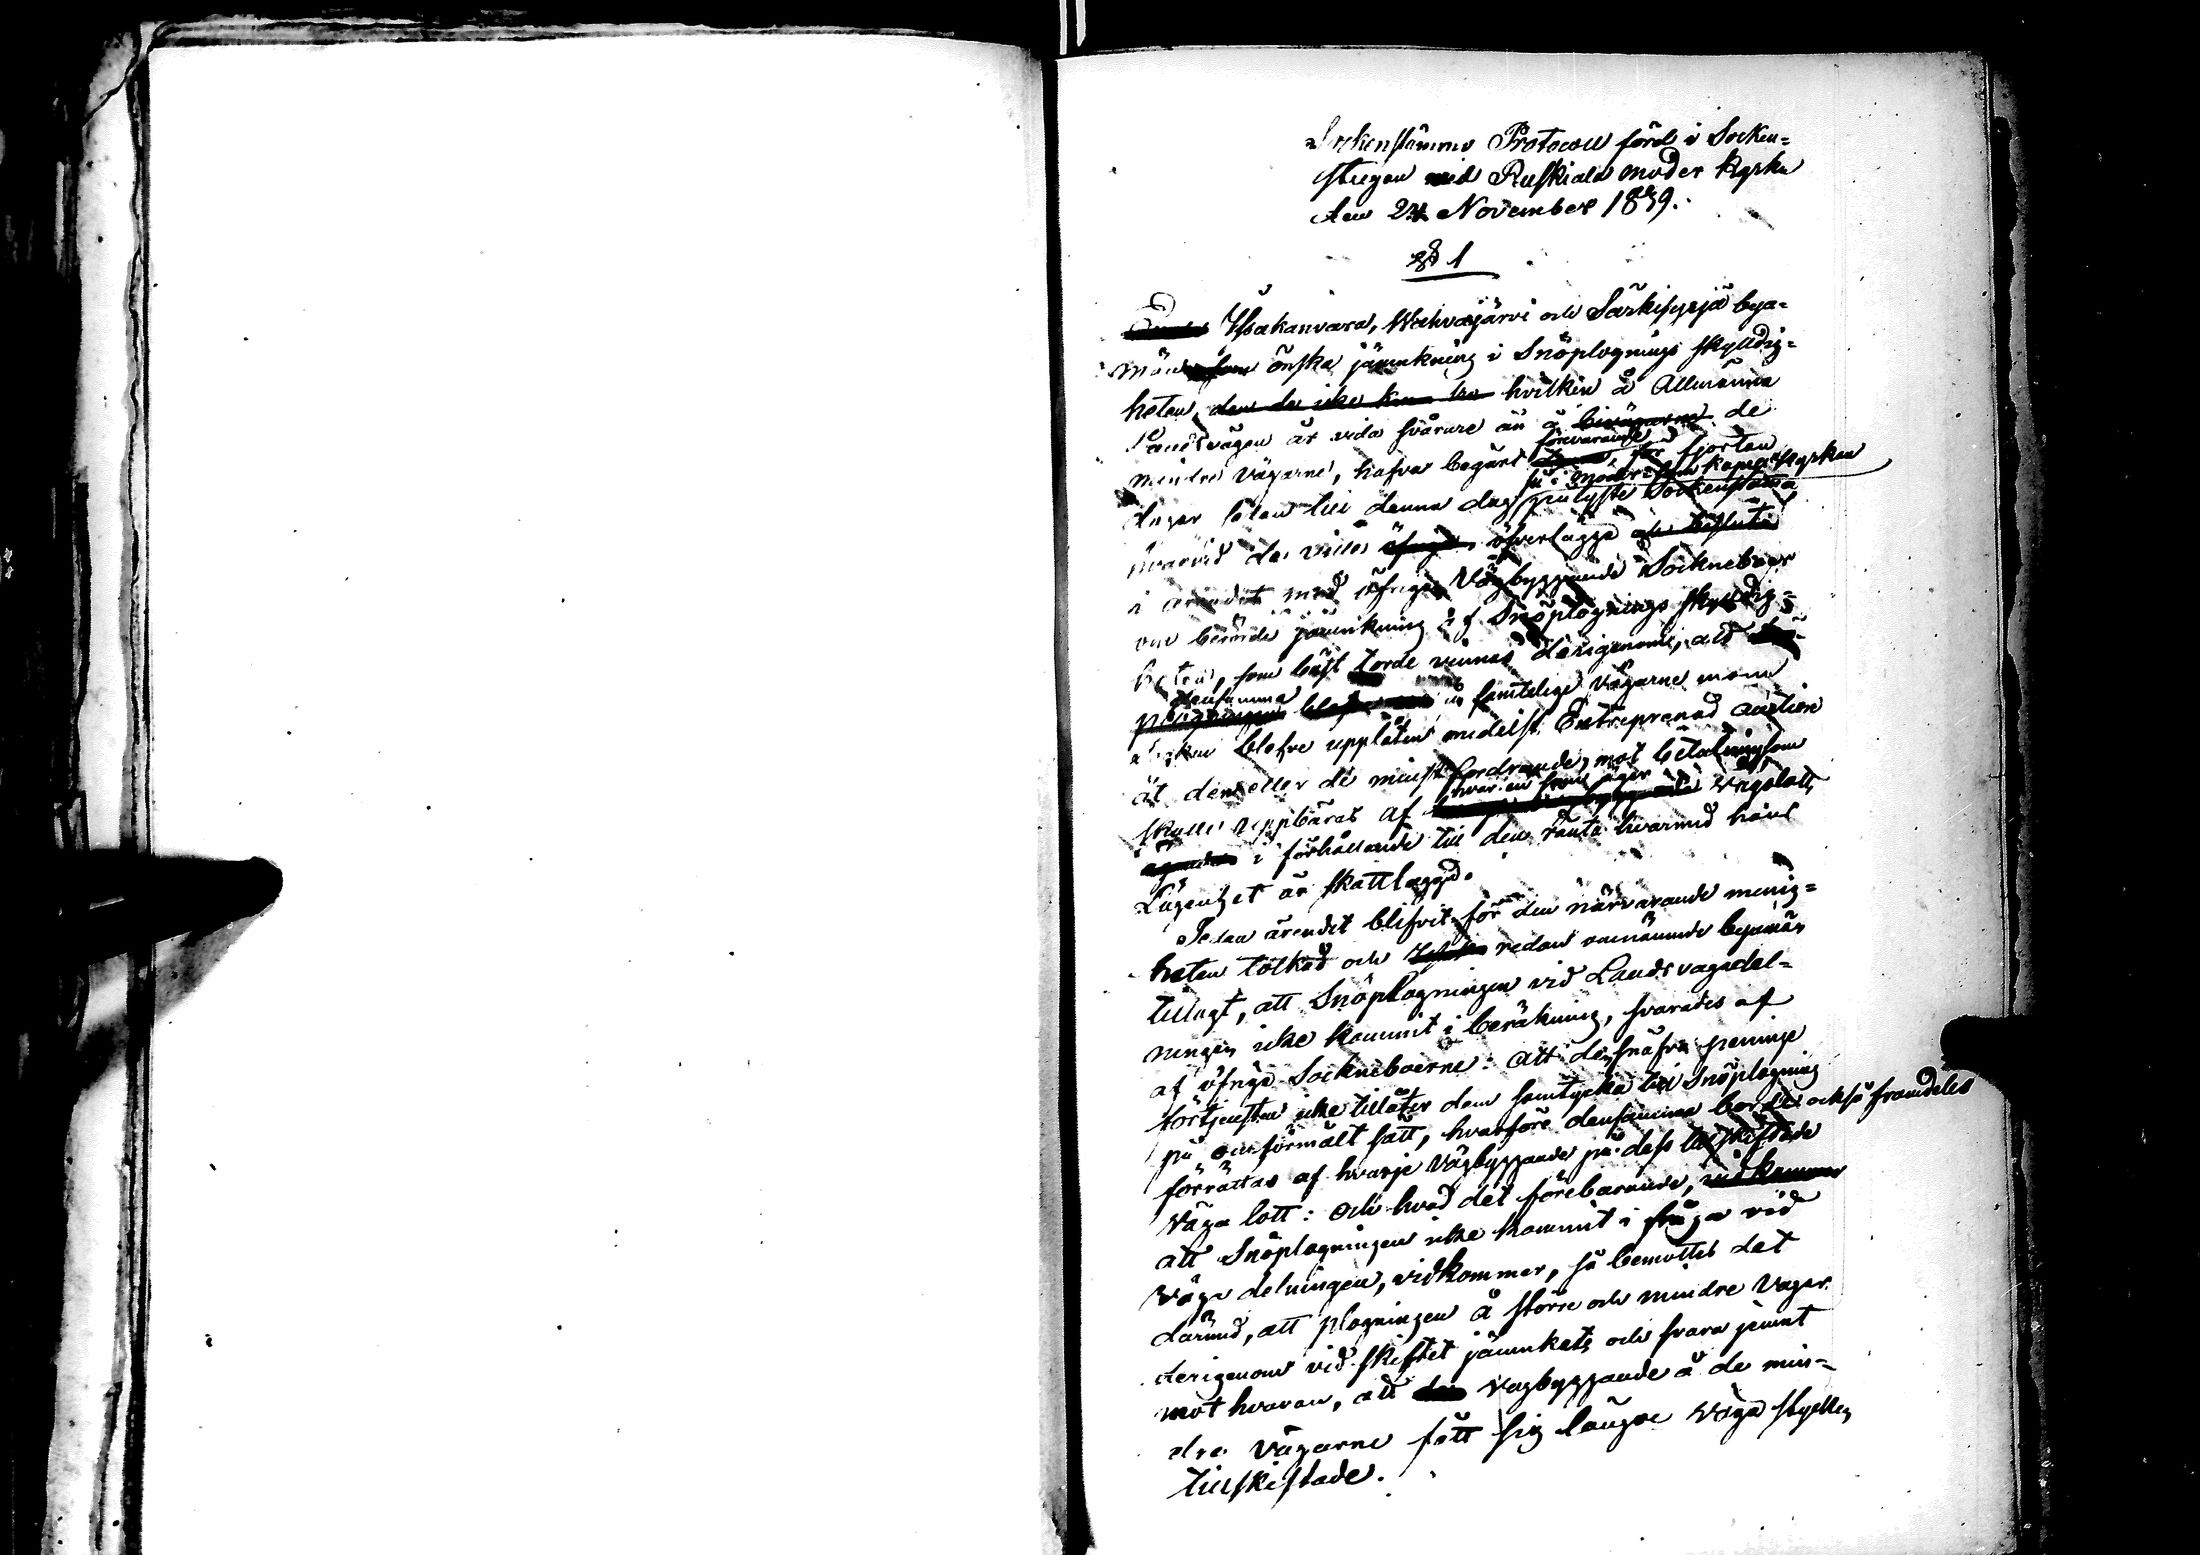 Sockenstämmo Protocoll förd i Socken=
stugan vid Ruskiala moder kyrka
den 24 November 1839.
§ 1
Ihakanvara, Wahvajärvi och Särkisyrjä bya=
män önska jämnkning i Snöplognings skyldig=
heten, den de icke kun hvilken å Allmänna
Landsvägen är vida svårare än å bivägarne de
mindre vägarne, hafva begärt förevarande för fjorton
dagar sedan till denna dag så i moder som kapell kyrkan pålyste Sockenstäma
hvarvid de ville öfrige öfverlägga och besluta
i ärendet med öfrige Vägbyggande Sockneboer
om berörde jämnkning af Snöplognings skyldig=
heten, som bäst torde vinnas derigenom, att
densamma plogningen å samtelige vägarne inom
socken blefve uppläten medelst Entreprenad auction
åt den eller de minst fordrande, mot betalning som
skulle uppbäras af hvar en som äger Vägalott
ägande i förhållande till den ränta hvarmed hans
Lägenhet är skattlagd.
Sedan ärendet blifvit för den närvarande menig=
heten tolkad och redan omnämnde byamän
tillagt, att Snöplogningen vid Landsvagadel=
ningen icke kommit i beräkning, svarades af
af öfrige Sockneboerne: att de snäfva peninge
förtjensten icke tillåter dem samtycka till Snöplogning
på omförmält sätt, hvarföre densamma borde också framdeles
förrättas af hvarje Vägbyggande på dess tillskiftade
Väga lott: och hvad det förebärande, vidkommer
att Snöplogningen icke kommit i fråga vid
Väga delningen, vidkommer, så bemöttes det
därmed, att plogningen å större och mindre Vagar
derigenom vid skiftet jämnkats och svara jemnt
mot hvaran, att Vagbyggande å de min=
dre vägarne fått sig längre Väga stycken
tillskiftade.